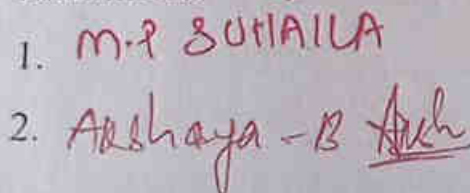 1. M.P SUHAILA
2. Akshaya - B